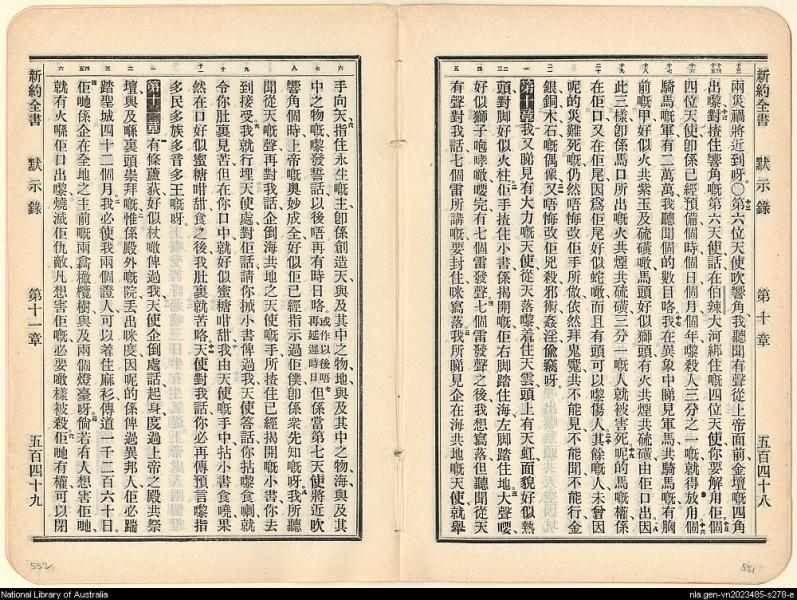 新約全書 默示錄 第十章 五百四十八
兩災禍將近到呀〇第六位天使吹響角我聽聞有聲從上帝面前金壇嘅四角
出嚟對揸住響角嘅第六天使話在伯辣大河綁住嘅四位天使你要解用佢個
四位天使卽係已經預備個時個日個月個年嚟殺人三分之一嘅就得放用個
騎馬嘅軍有二萬萬我聽聞個的數目咯我在異象中睇見軍馬共騎馬嘅有胸
前嘅甲好似火共紫玉及硫磺噉馬頭好似獅頭有火共煙共硫磺由佢口出因
此三樣卽係馬口所出嘅火共煙共硫磺三分一嘅人就被害死呢的馬嘅權係
在佢口又在佢尾因爲佢尾好似蛇噉而且有頭可以嚟傷人其餘嘅人未曾因
呢的災難死嘅仍然唔悔改佢手所做依然拜鬼共不能見不能聞不能行金
銀銅木石嘅偶像又唔悔改佢兇殺邪術姦淫偷竊呀
第十章 我又睇見有大力嘅天使從天落嚟着住天雲頭上有天虹面貌好似熱
頭對脚好似火柱佢手揸住小書係揭開嘅佢右脚踏住海左脚踏住地大聲嘜
好似獅子咆哮噉嘜完有七個雷發聲七個雷發聲之後我想寫落但聽聞從天
有聲對我話七個雷所講嘅要封住咪寫落我所睇見企在海共地嘅天使就舉
手向天指住永生嘅主卽係創造天與及其中之物地與及其中之物海與及其
中之物嘅嚟發誓話以後唔再有時日咯或作以後唔再延遲時日但係當第七天使將近吹
響角個時上帝嘅奧妙成全好似佢已經指示過佢僕卽係衆先知嘅呀我所聽
聞從天嘅聲再對我話企倒海共地之天使嘅手所揸住已經揭開嘅小書你去
到接受我就行埋天使處對佢話請你搣小書俾過我天使答話你拈嚟食喇就
令你肚裏見苦但在你口中就好似蜜糖咁甜我由天使嘅手中拈小書食嘵果
然在口好似蜜糖咁甜食之後我肚裏就苦咯天使對我話你必再傳預言嚟指
多民多族多音多王嘅呀
第十一章 有條蘆荻好似杖噉俾過我天使企倒處話起身度過上帝之殿共祭
壇與及喺裏頭崇拜嘅惟係殿外嘅院丟出咪度因呢的係俾過異邦人佢必踹
踏聖城四十二個月我必使我兩個證人可以着住麻衫傳道一千二百六十日
佢哋係企在全地之主前嘅兩翕橄欖樹與及兩個燈臺呀倘若有人想害佢哋
就有火喺佢口出嚟燒滅佢仇敵凡想害佢嘅必要噉樣被殺佢哋有權可以閉
新約全書 默示錄 第十一章 五百四十九
552
551
National Library of Australia
nla.gen-vn2023485-s278-e